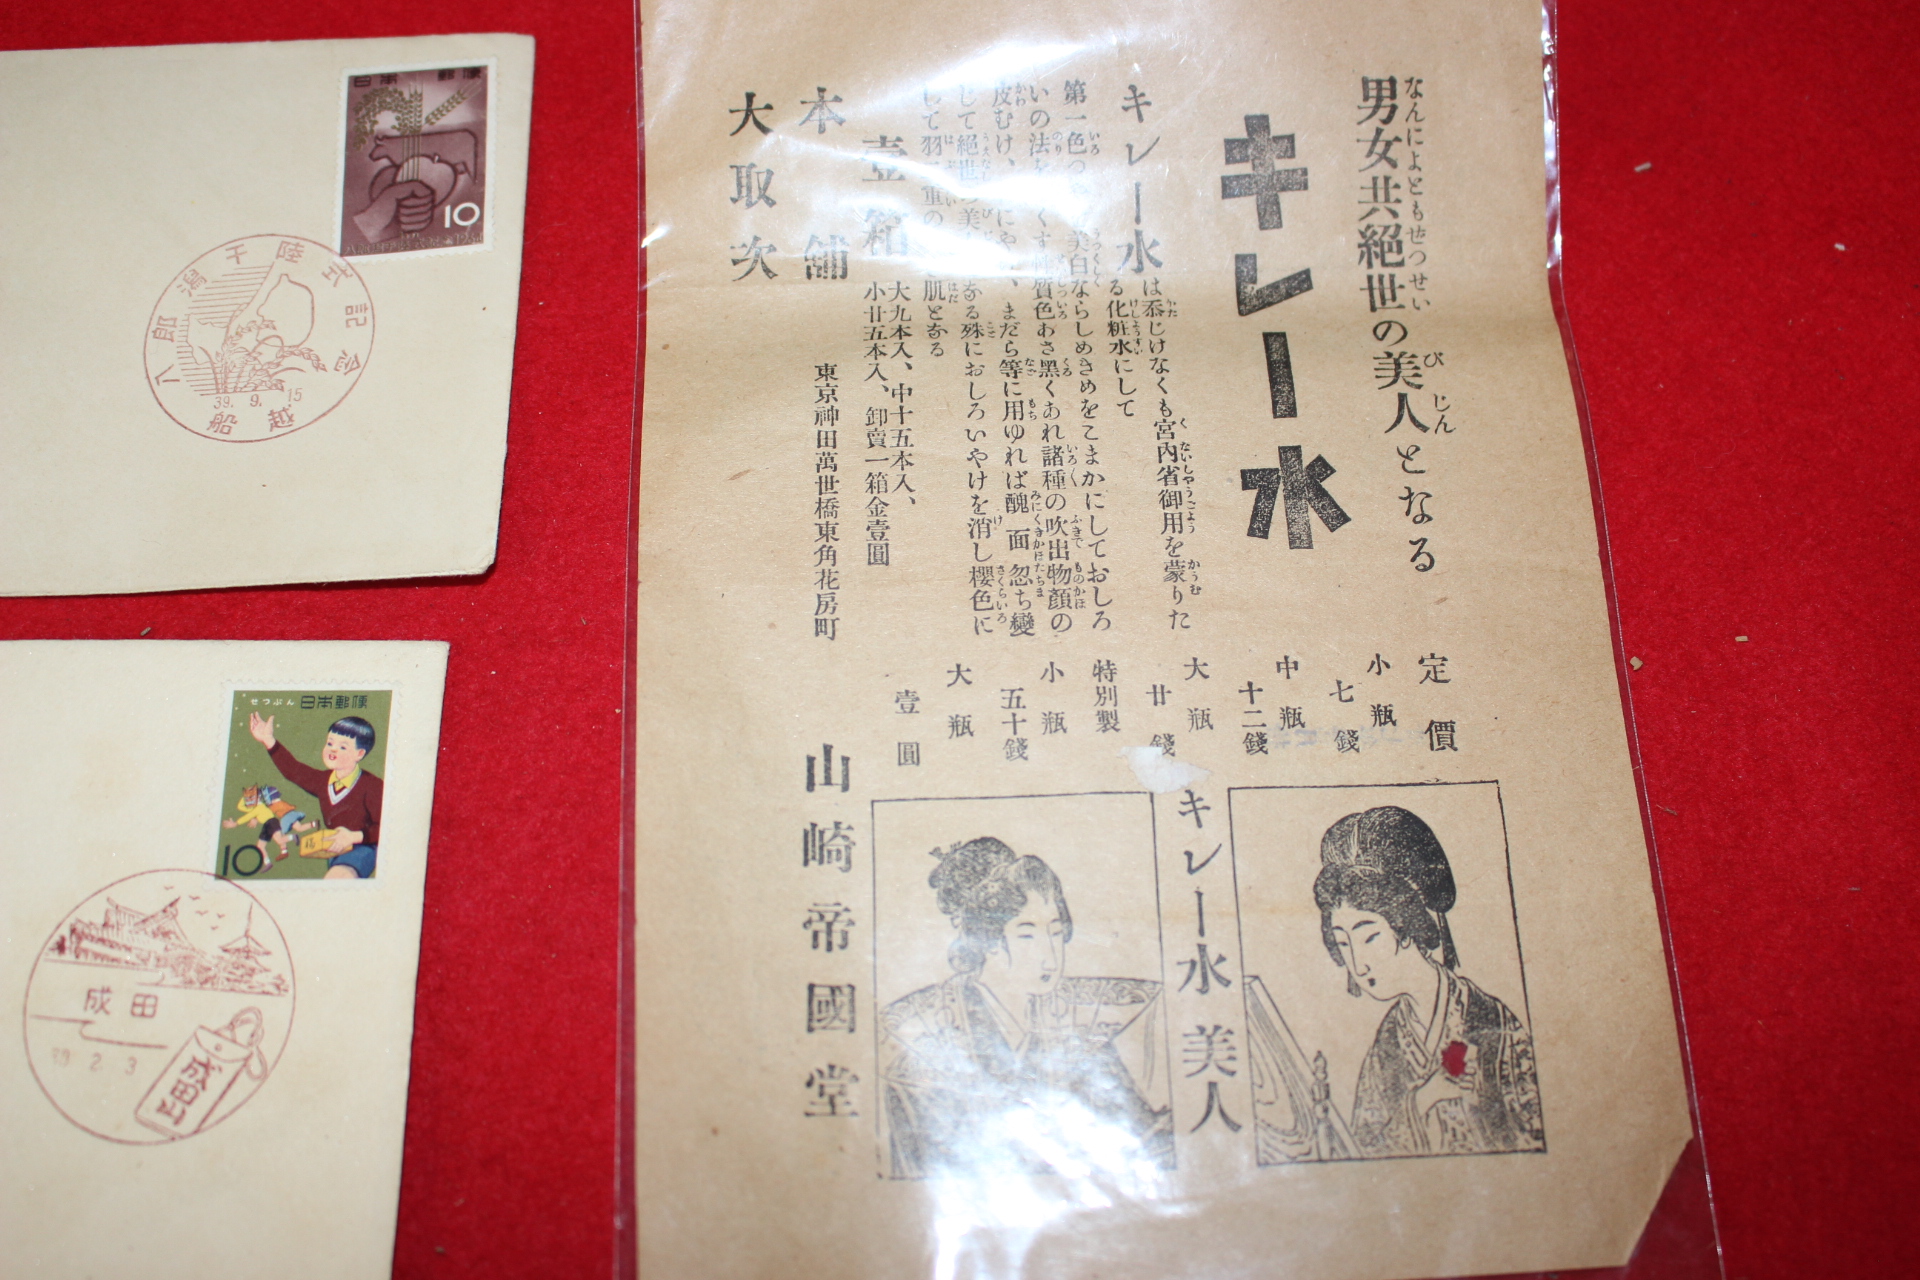 日本郵便
10
八郎潟干陸式記念
39. 9. 15
船越
せつぶん
日本郵便
10
成田
39 2 3
成田山
男女共絶世の美人となる
なんによともせつせい びじん
キレー水
キレー水は忝じけなくも宮内省御用を蒙りた
る化粧水にして
美白ならしめきめをこまかにしておしろ
質色あさ黒くあれ諸種の吹出物顔の
皮むけ、
まだら等に用ゆれば醜面忽ち變
じて絶世の美
なる殊におしろいやけを消し櫻色に
して羽二重の
肌となる
壹箱
大九本入、中十五本入、
小廿五本入、卸賣一箱金壹圓
本舗
東京神田萬世橋東角花房町
山崎帝國堂
大取次
定價
小瓶
七錢
中瓶
十二錢
大瓶
廿錢
特別製
小瓶
五十錢
大瓶
壹圓
キレー水美人